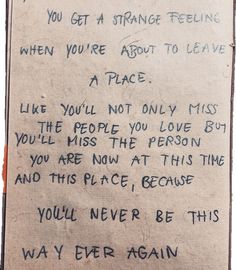 YOU GET A STRANGE FEELING
WHEN YOU'RE ABOUT TO LEAVE
A PLACE.
LIKE YOU'LL NOT ONLY MISS
THE PEOPLE YOU LOVE BUT
YOU'LL MISS THE PERSON
YOU ARE NOW AT THIS TIME
AND THIS PLACE, BECAUSE
YOU'LL NEVER BE THIS
WAY EVER AGAIN